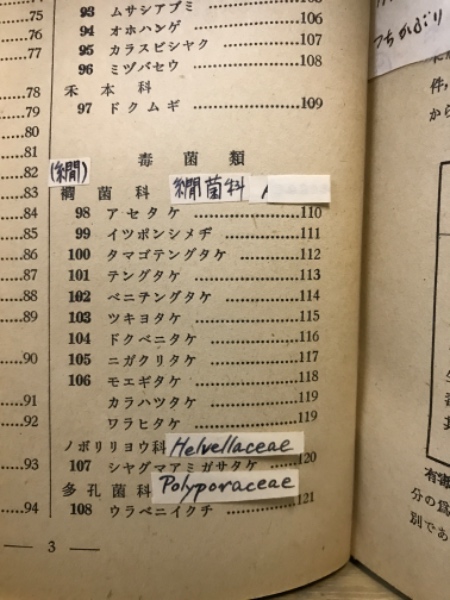 75
76
77
78
79
80
81
82
83
84
85
86
87
88
89
90
91
92
93
94
93 ムサシアブミ ……106
94 オホハンゲ ……106
95 カラスビシャク ……107
96 ミヅバセウ ……108
禾本科
97 ドクムギ ……109
毒菌類
(繝)
襉菌科 繝菌科
98 アセタケ ……110
99 イツポンシメヂ ……111
100 タマゴテングタケ ……112
101 テングタケ ……113
102 ベニテングタケ ……114
103 ツキヨタケ ……115
104 ドクベニタケ ……116
105 ニガクリタケ ……117
106 モエギタケ ……118
カラハツタケ ……119
ワラヒタケ ……119
ノボリリョウ科 Helvellaceae
107 シャグマアミガサタケ ……120
多孔菌科 Polyporaceae
108 ウラベニイクチ ……121
— 3 —
つちかぶり
件,
から
有害
分の爲
別であ